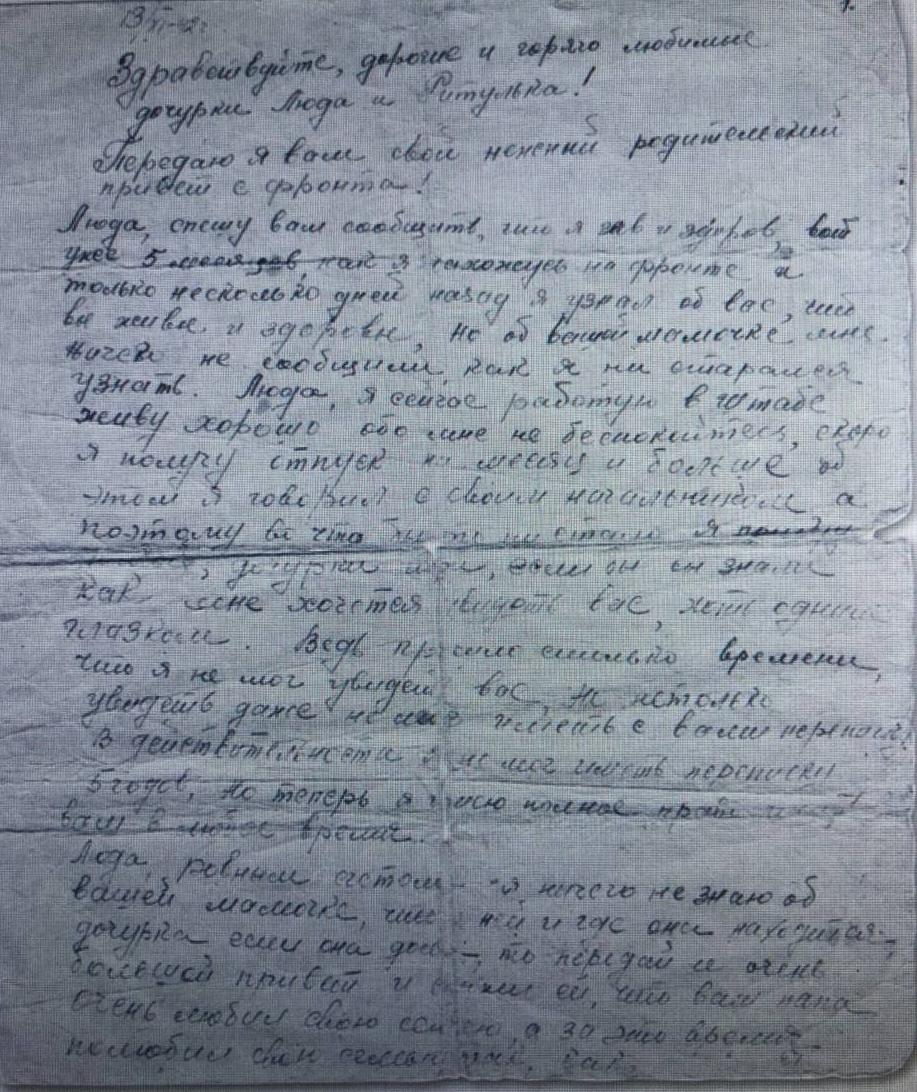 1.
13/XI-42г.
Здравствуйте, дорогие и горячо любимые
дочурки Люда и Ритулька!
Передаю я вам свой нежений родительский
привет с фронта!
Люда, спешу вам сообщить, что я жив и здоров, вот
уже 5 месяцев, как я нахожусь на фронте и
только несколько дней назад я узнал об вас, что
вы живы и здоровы, но об вашей мамочке мне
ничего не сообщили, как я ни старался
узнать. Люда, я сейчас работую в штабе
живу хорошо обо мне не беспокойтесь, скоро
я получу отпуск на месяц и больше об
этом я говорил с своим начальником а
поэтому во что бы то ни стало я
дочурки мои, если бы вы знали
как мне хочется видеть вас, хоть одним
глазком. Ведь прошло столько времени,
что я не мог увидеть вас, не настолько
увидеть даже не мог иметь с вами переписку
В действительности я не мог иметь переписки
5 годов, но теперь я имею полное право
вам в любое время.
Люда, ровным счетом - я ничего не знаю об
вашей мамочке, что с ней и где она находится,
дочурка если она дома, то передай ей очень
большой привет и скажи ей, что ваш папа
очень любил свою семью, а за это время
полюбил свою семью так, как